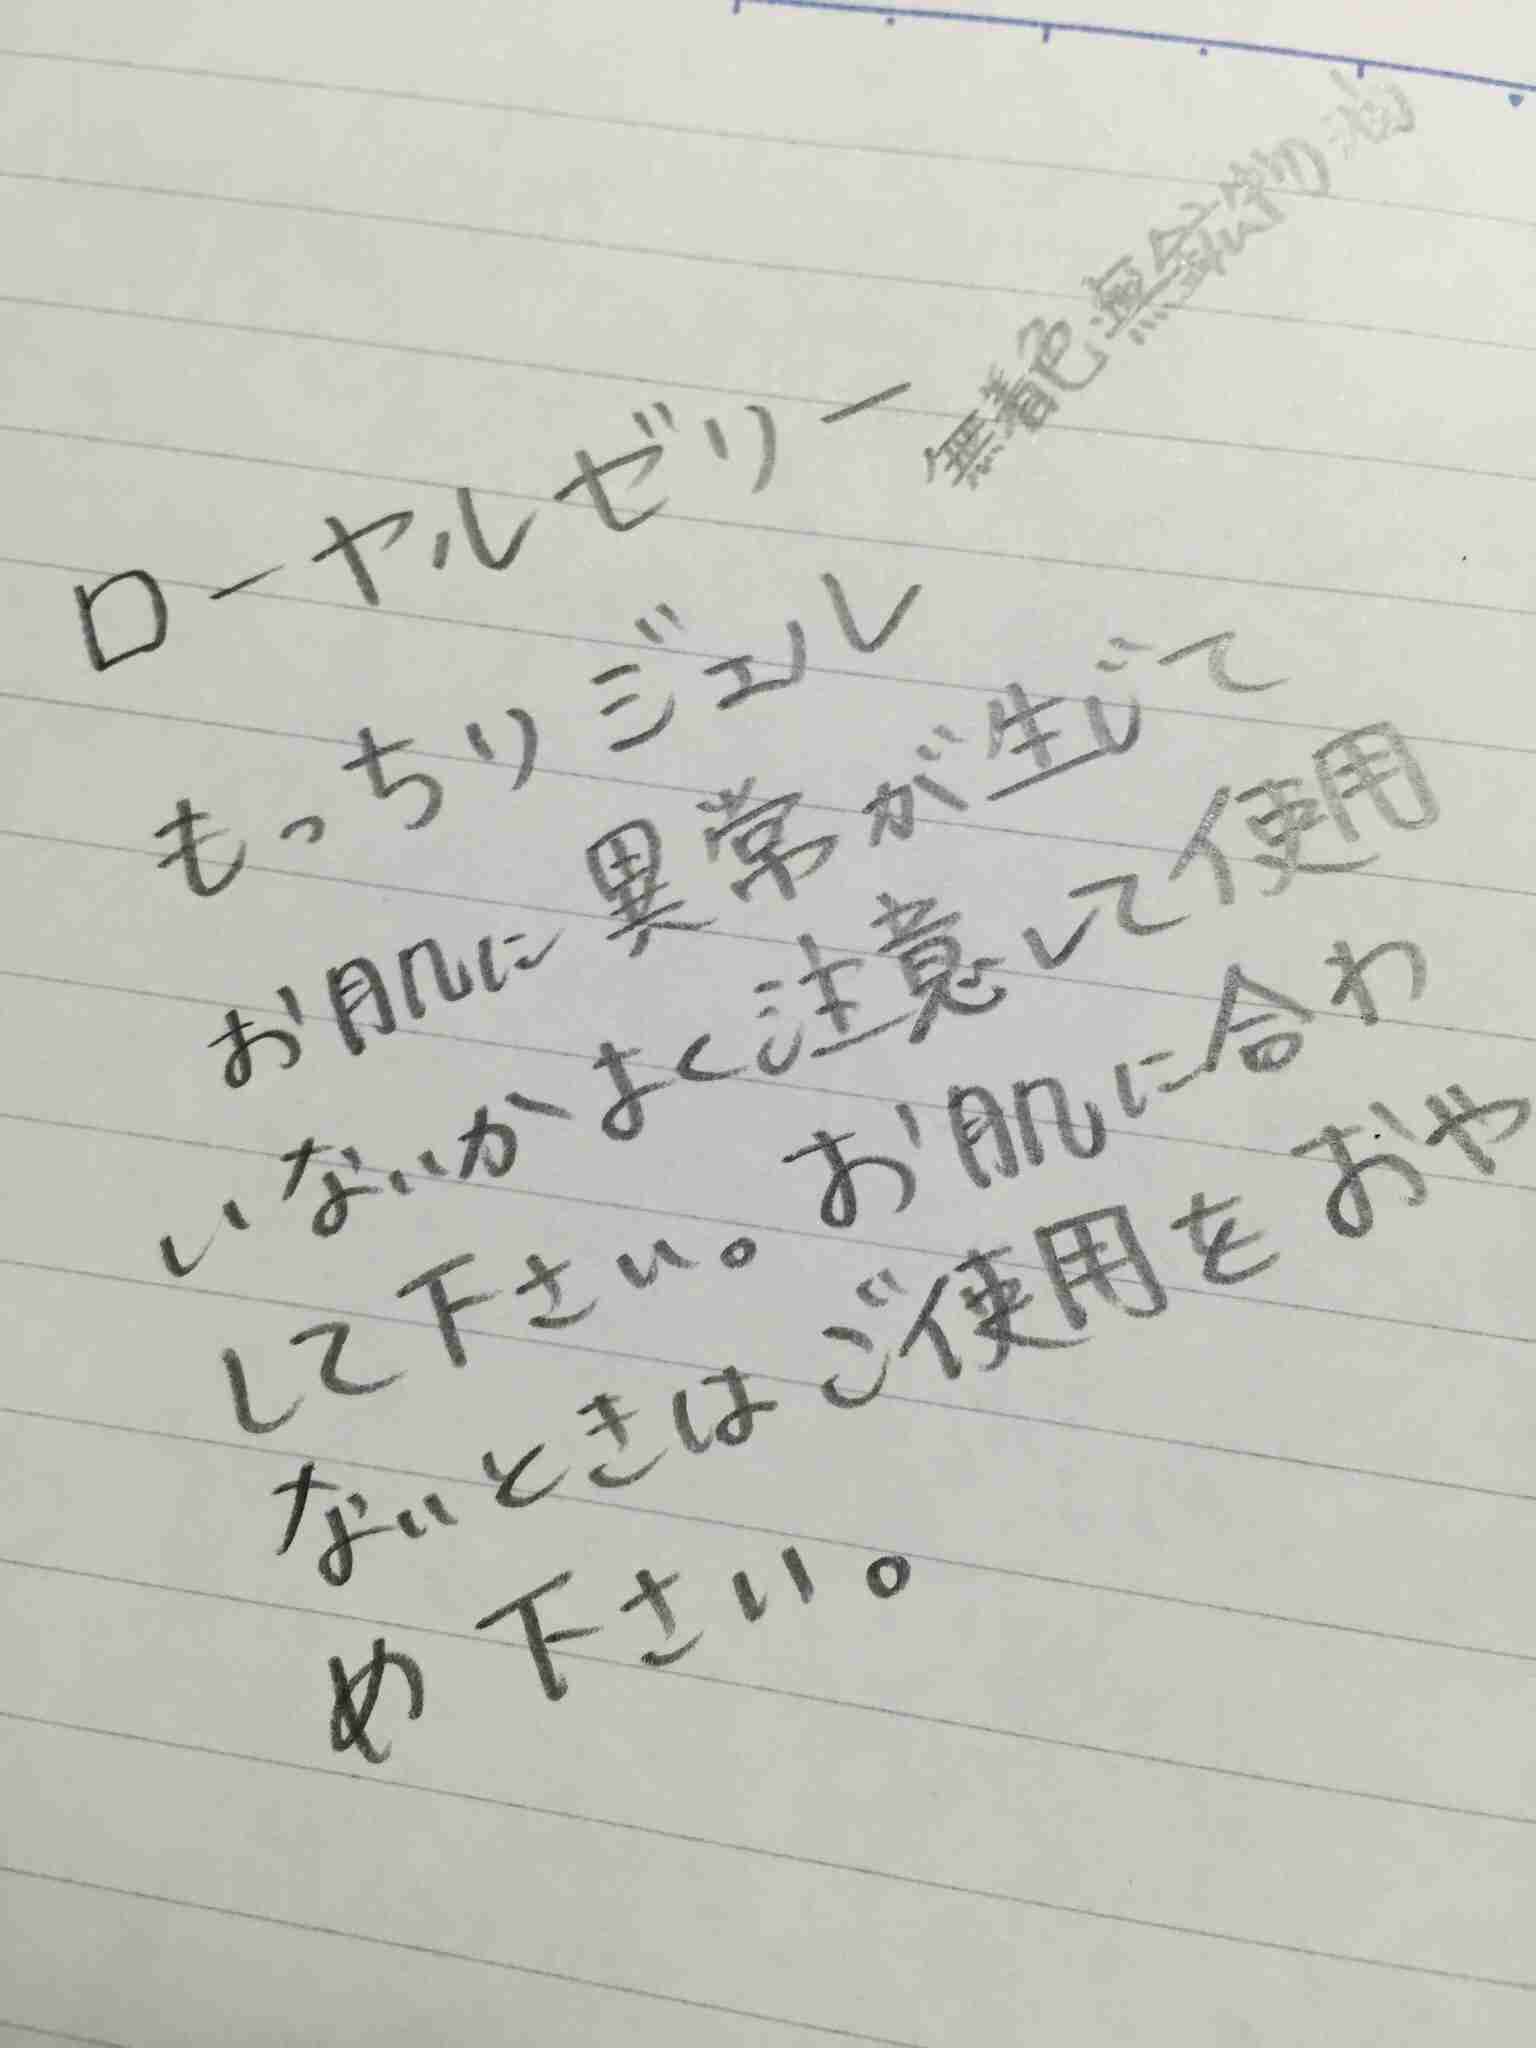 ローヤルゼリー
無着色無鉱物油
もっちりジェル
お肌に異常が生じて
いないかよく注意して使用
して下さい。お肌に合わ
ないときはご使用をおや
め下さい。